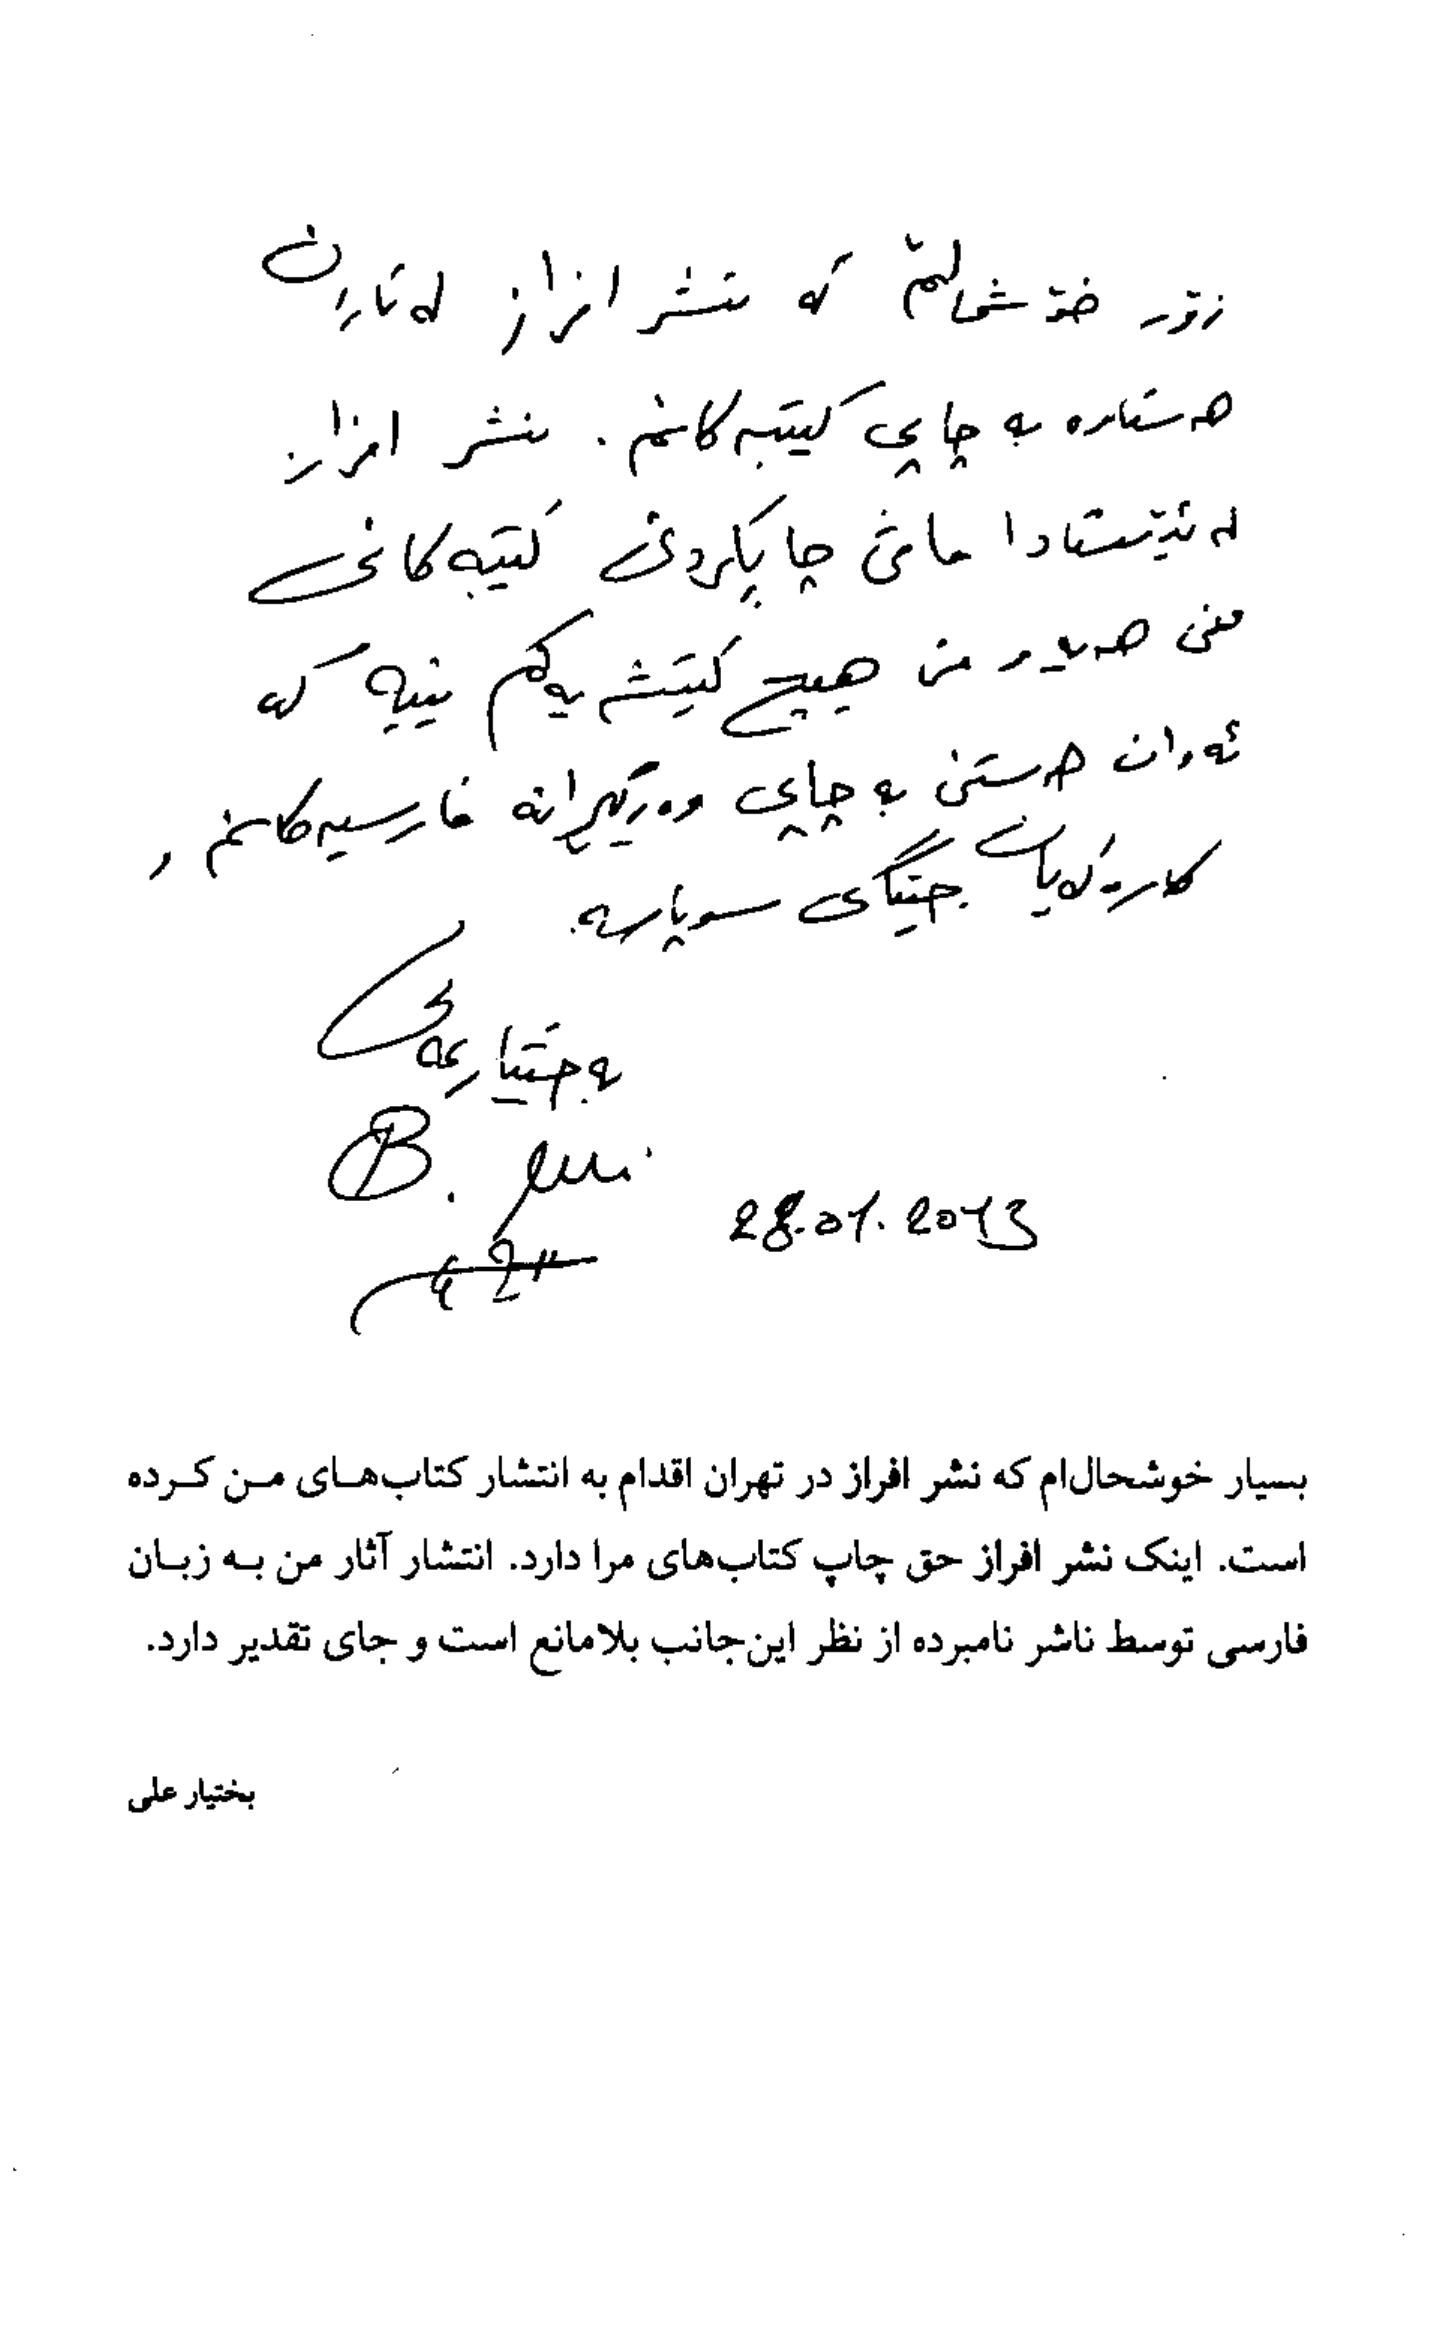 زۆر خۆشحاڵم کە نشر افراز لە تاران
هەستاوە بە چاپی کتێبەکانم. نشر افراز
لە ئێستادا مافی چاپکردنی کتێبەکانی
منی هەیە و من هیچ کێشەیەکم نییە کە
ئەوان هەستن بە چاپی وەرگێڕانە فارسیەکانم و
کارەکەیان جێگای سوپاسە.
بەختیار عەلی
B. Ali
28.01.2013
بسیار خوشحال‌ام که نشر افراز در تهران اقدام به انتشار کتاب‌های من کرده
است. اینک نشر افراز حق چاپ کتاب‌های مرا دارد. انتشار آثار من به زبان
فارسی توسط ناشر نامبرده از نظر این‌جانب بلامانع است و جای تقدیر دارد.
بختیار علی